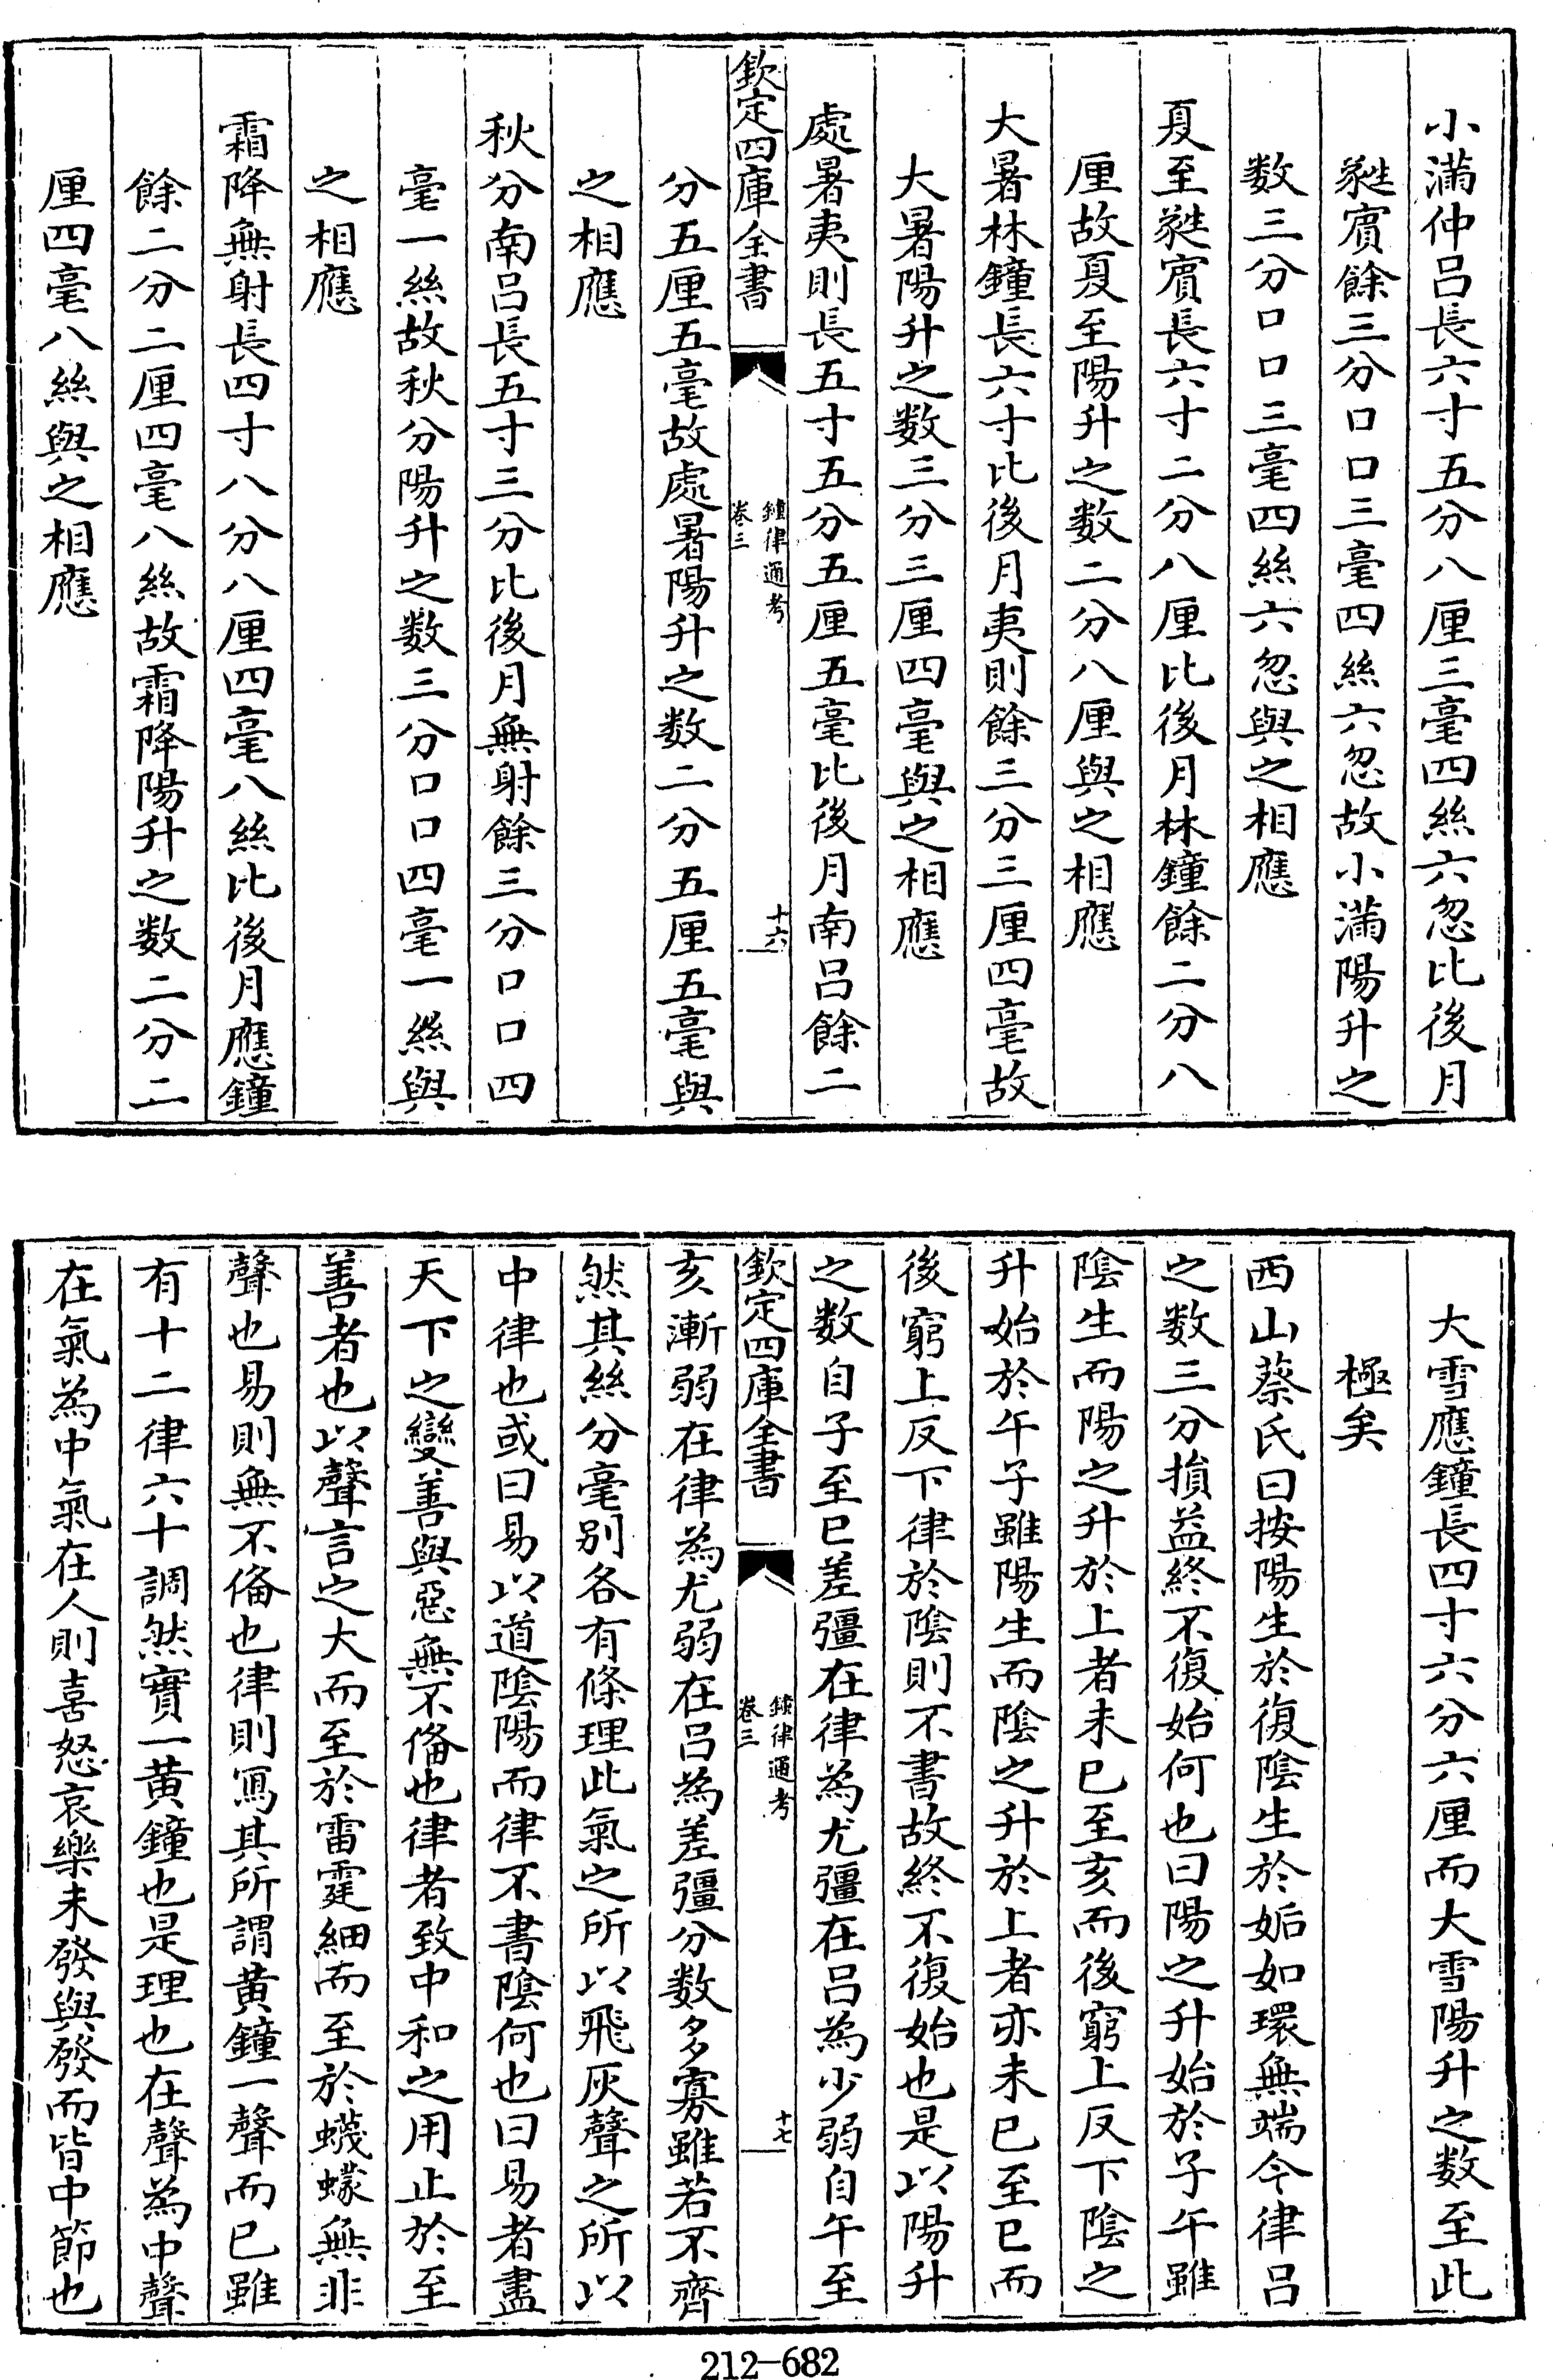 小滿仲呂長六寸五分八厘三毫四絲六忽比後月
蕤賓餘三分口口三毫四絲六忽故小滿陽升之
数三分口口三毫四絲六忽與之相應
夏至蕤賓長六寸二分八厘比後月林鐘餘二分八
厘故夏至陽升之数二分八厘與之相應
大暑林鐘長六寸比後月夷則餘三分三厘四毫故
大暑陽升之数三分三厘四毫與之相應
處暑夷則長五寸五分五厘五毫比後月南呂餘二
欽定四庫全書
鍾律通考
卷三
十六
分五厘五毫故處暑陽升之数二分五厘五毫與
之相應
秋分南呂長五寸三分比後月無射餘三分口口四
毫一絲故秋分陽升之数三分口口四毫一絲與
之相應
霜降無射長四寸八分八厘四毫八絲比後月應鐘
餘二分二厘四毫八絲故霜降陽升之数二分二
厘四毫八絲與之相應
大雪應鐘長四寸六分六厘而大雪陽升之数至此
極矣
西山蔡氏曰按陽生於復陰生於姤如環無端今律呂
之数三分損益終不復始何也曰陽之升始於子午雖
陰生而陽之升於上者未已至亥而後窮上反下陰之
升始於午子雖陽生而陰之升於上者亦未已至巳而
後窮上反下律於陰則不書故終不復始也是以陽升
之数自子至巳差彊在律為尤彊在呂為少弱自午至
欽定四庫全書
鍾律通考
卷三
十七
亥漸弱在律為尤弱在呂為差彊分数多寡雖若不齊
然其絲分毫別各有條理此氣之所以飛灰聲之所以
中律也或曰易以道陰陽而律不書陰何也曰易者盡
天下之變善與惡無不偹也律者致中和之用止於至
善者也以聲言之大而至於雷霆細而至於蠛蠓無非
聲也易則無不偹也律則冩其所謂黄鐘一聲而已雖
有十二律六十調然實一黄鐘也是理也在聲為中聲
在氣為中氣在人則喜怒哀樂未發與發而皆中節也
212-682